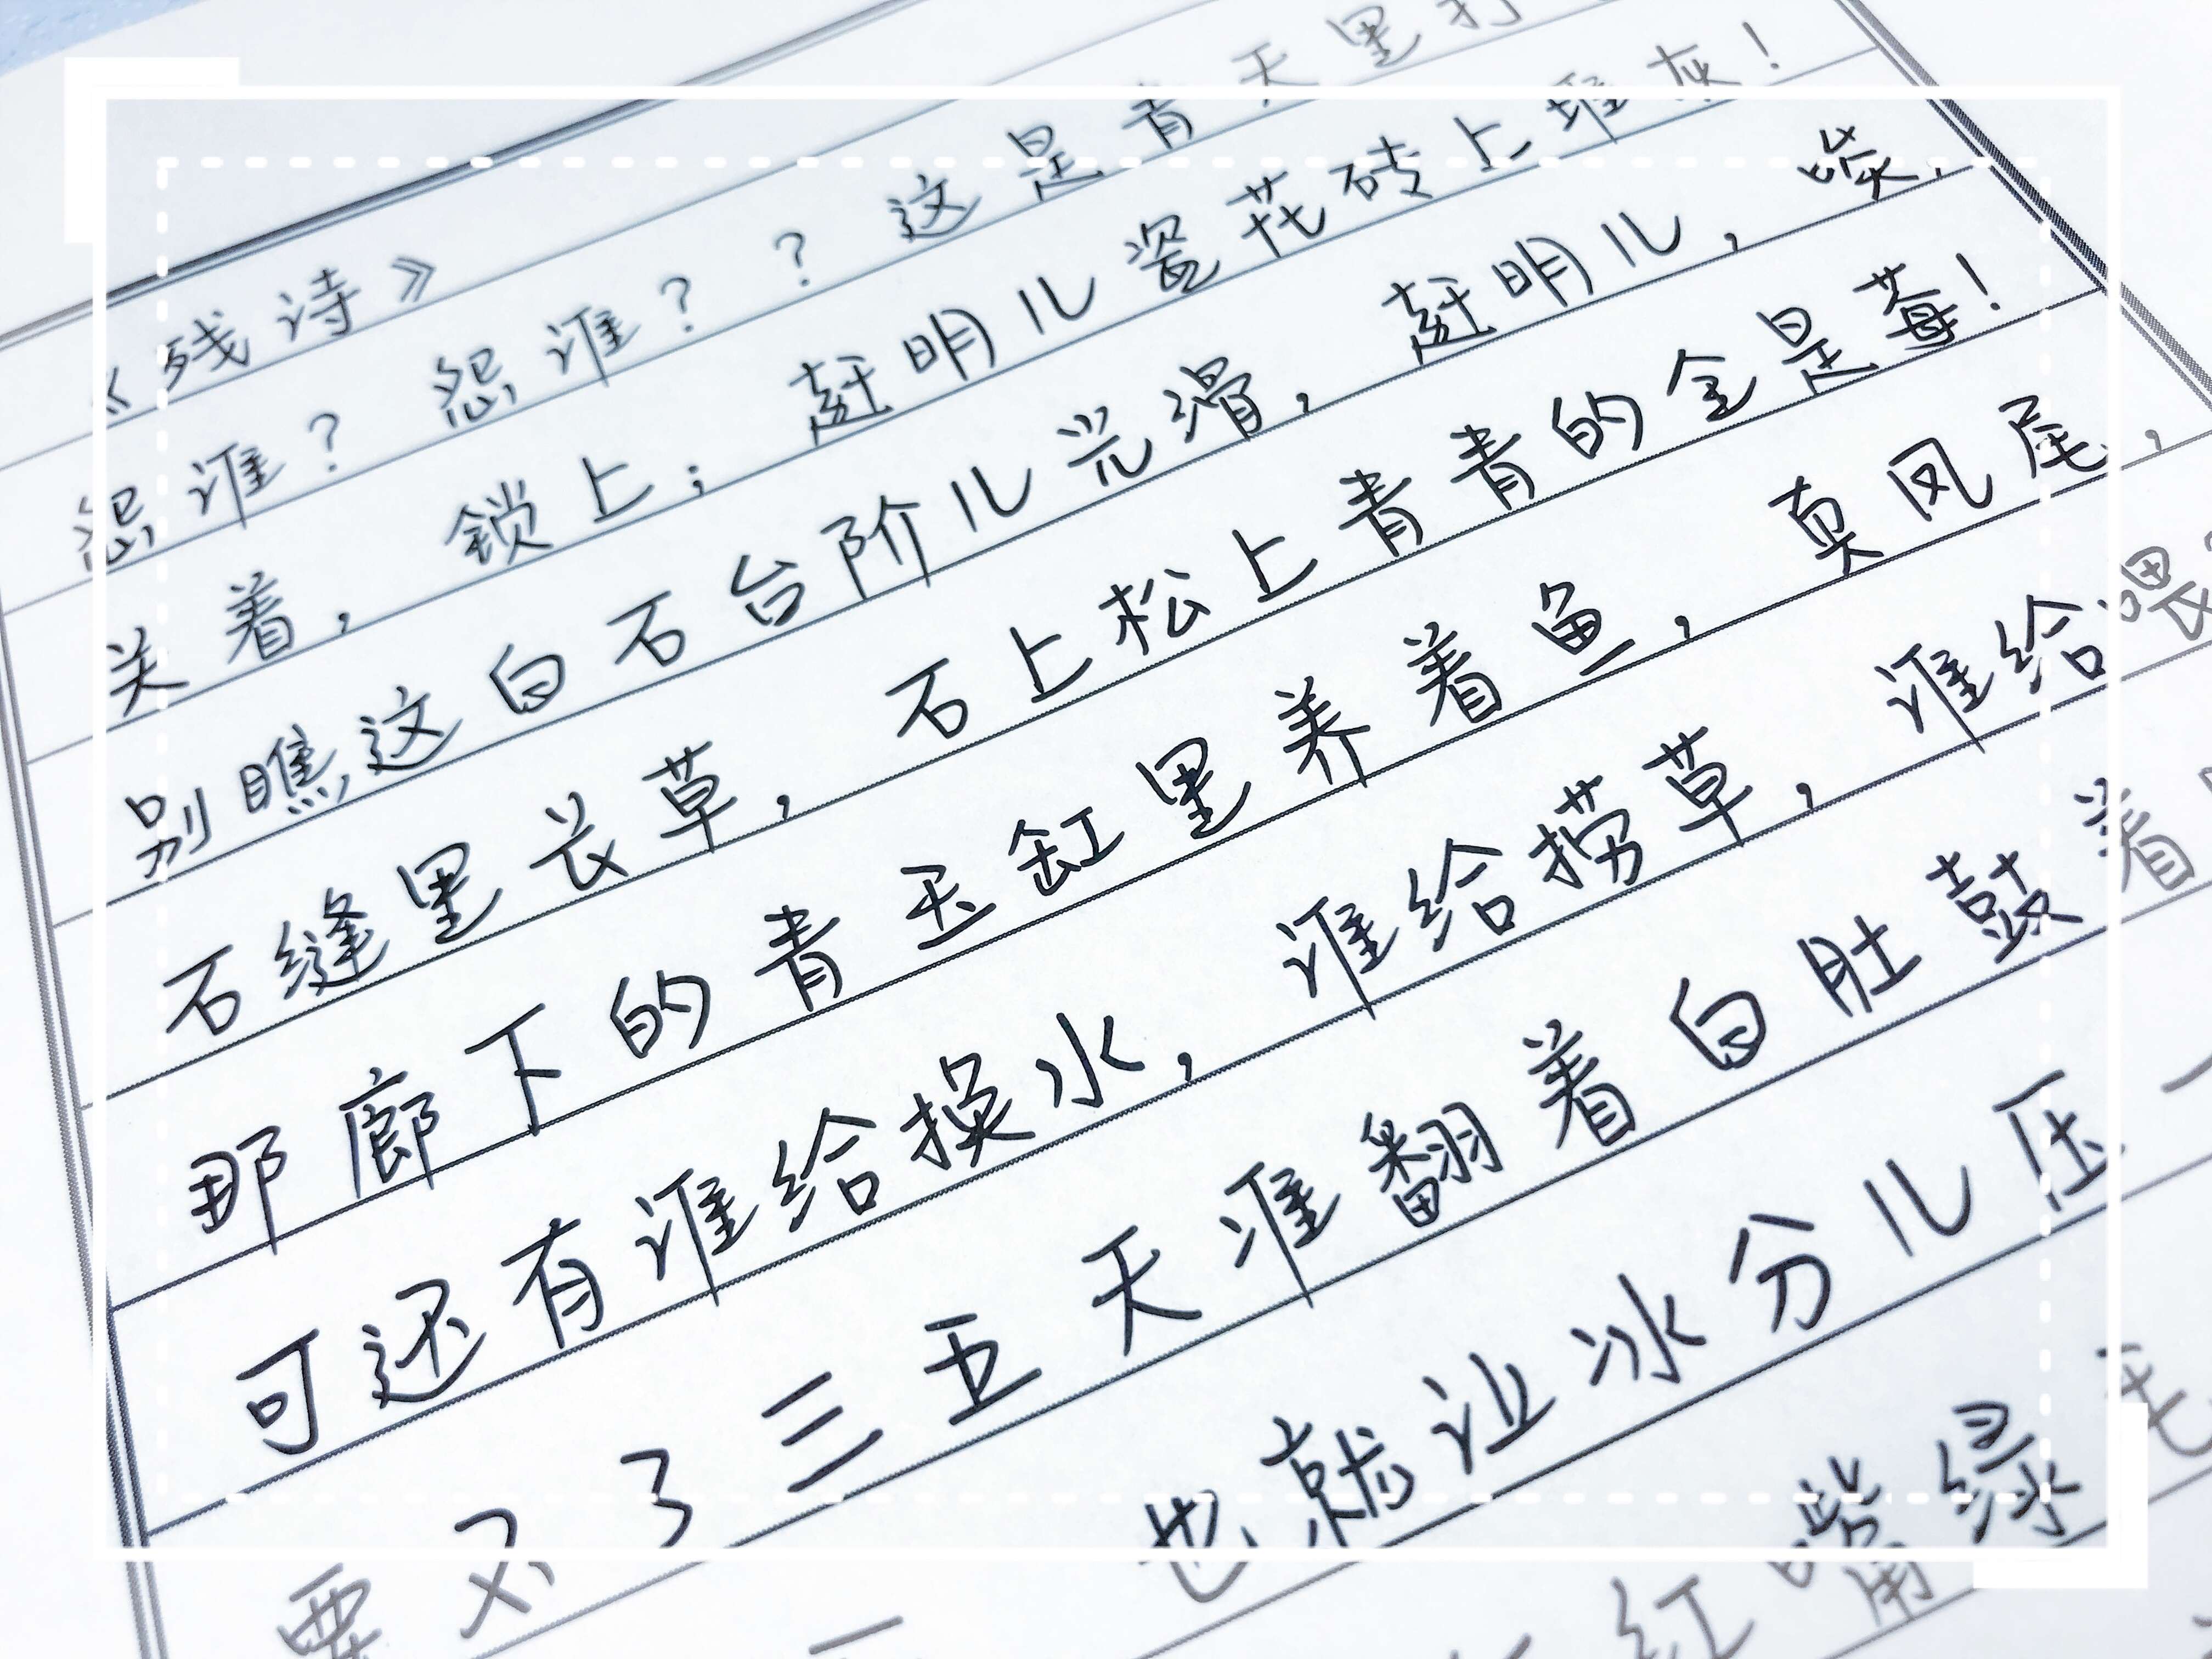 《残诗》
怨谁？ 怨谁？ ？ 这是青天里打
关着， 锁上； 赶明儿瓷花砖上堆灰！
别瞧这白石台阶儿光滑， 赶明儿， 唉，
石缝里长草， 石上松上青青的全是莓！
那廊下的青玉缸里养着鱼， 真凤尾，
可还有谁给换水， 谁给捞草， 谁给喂
要不了三五天准翻着白肚鼓着
也就让冰分儿压
红嘴绿毛